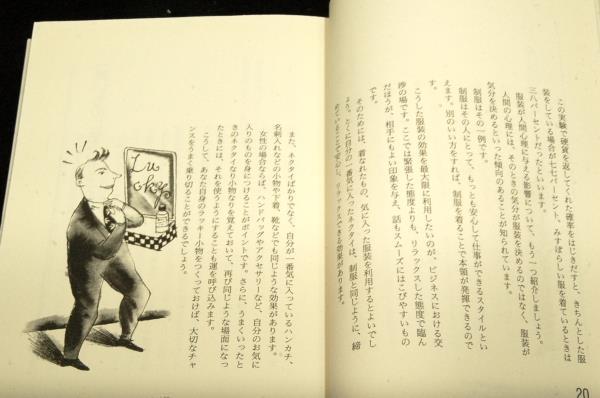 この実験で硬貨を返してくれた確率をはじきだすと、きちんとした服
装をしている場合が七七パーセント、みすぼらしい服を着ているときは
三八パーセントだったといいます。
服装が人間心理に与える影響について、もう一つ紹介しましょう。
人間の心理には、そのときの気分が服装を決めるのではなく、服装が
気分を決めるといった傾向のあることが知られています。
制服はその一例です。
制服はその人にとって、もっとも安心して仕事ができるスタイルとい
えます。別のいい方をすれば、制服を着ることで本領が発揮できるので
す。
こうした服装の効果を最大限に利用したいのが、ビジネスにおける交
渉の場です。ここでは緊張した態度よりも、リラックスした態度で臨ん
だほうが、相手にもよい印象を与え、話もスムーズにはこびやすいもの
です。
そのためには、着なれたもの、気に入った服装を利用するとよいでし
ょう。とくに自分の一番気に入ったネクタイは、制服と同じように、締
めていることで安心し、リラックスできる効果があります。
20
また、ネクタイばかりでなく、自分が一番気に入っているハンカチ、
名刺入れなどの小物や下着、靴などでも同じような効果があります。
女性の場合ならば、ハンドバッグやアクセサリーなど、自分のお気に
入りのものを身につけることがポイントです。さらに、うまくいったと
きのネクタイなり小物なりを覚えておいて、再び同じような場面になっ
たときには、それを使うようにすることも運を呼び込みます。
こうして、あなた自身のラッキー小物をつくっておけば、大切なチャ
ンスをうまく乗り切ることができるでしょう。
Lu
ckey